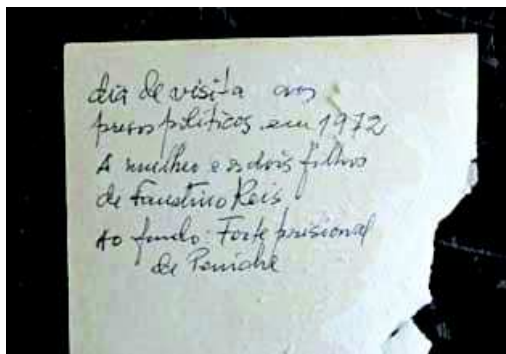 dia de visita aos
presos políticos em 1972
A mulher e os dois filhos
de Faustino Reis
Ao fundo: Forte prisional
de Peniche